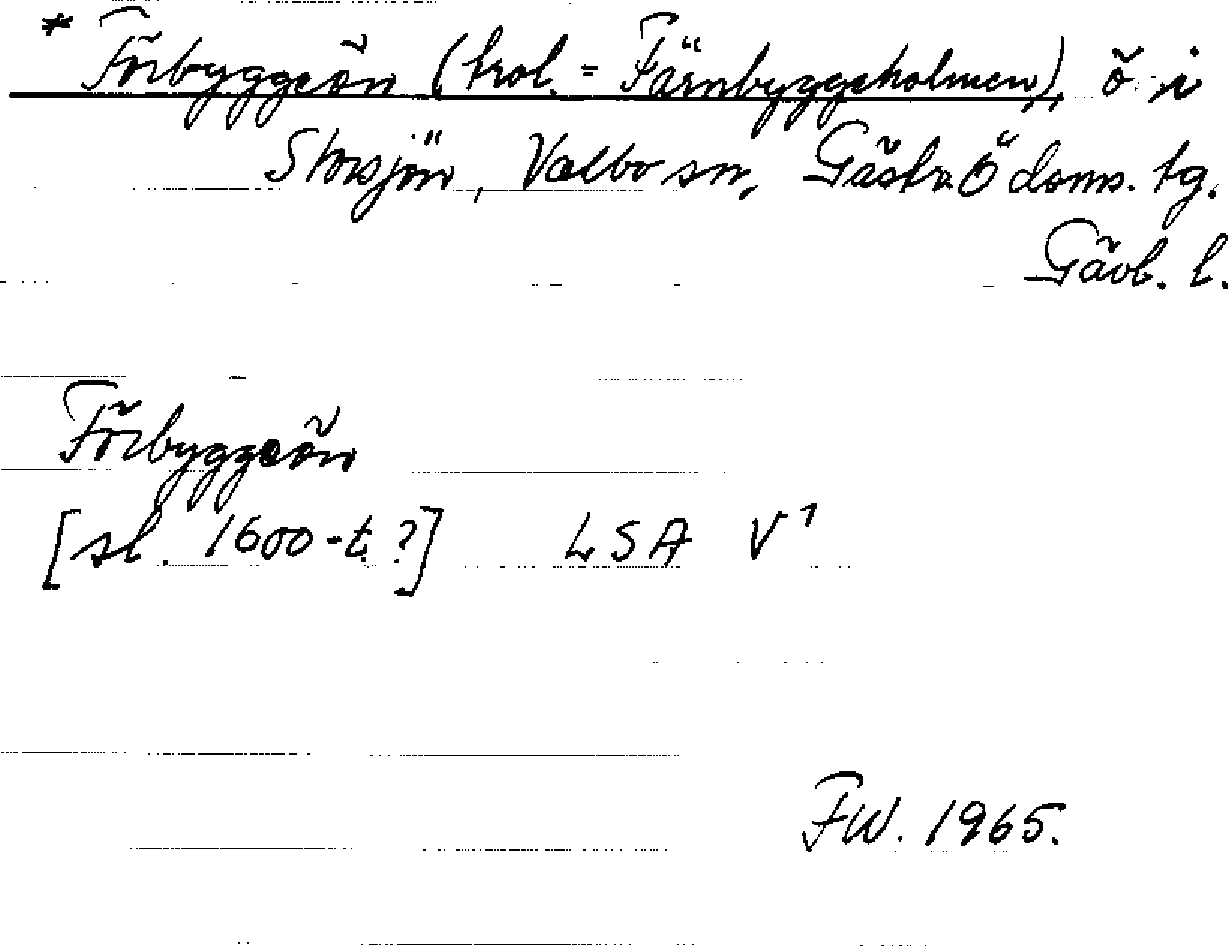 * Förbyggeön (trol. = Färnbyggeholmen), ö i
Storsjön, Valbo sn, Gästr. Ö doms. tg.
Gävb. l.
Förbyggeön
[sl. 1600-t. ?] LSA V¹
FW. 1965.